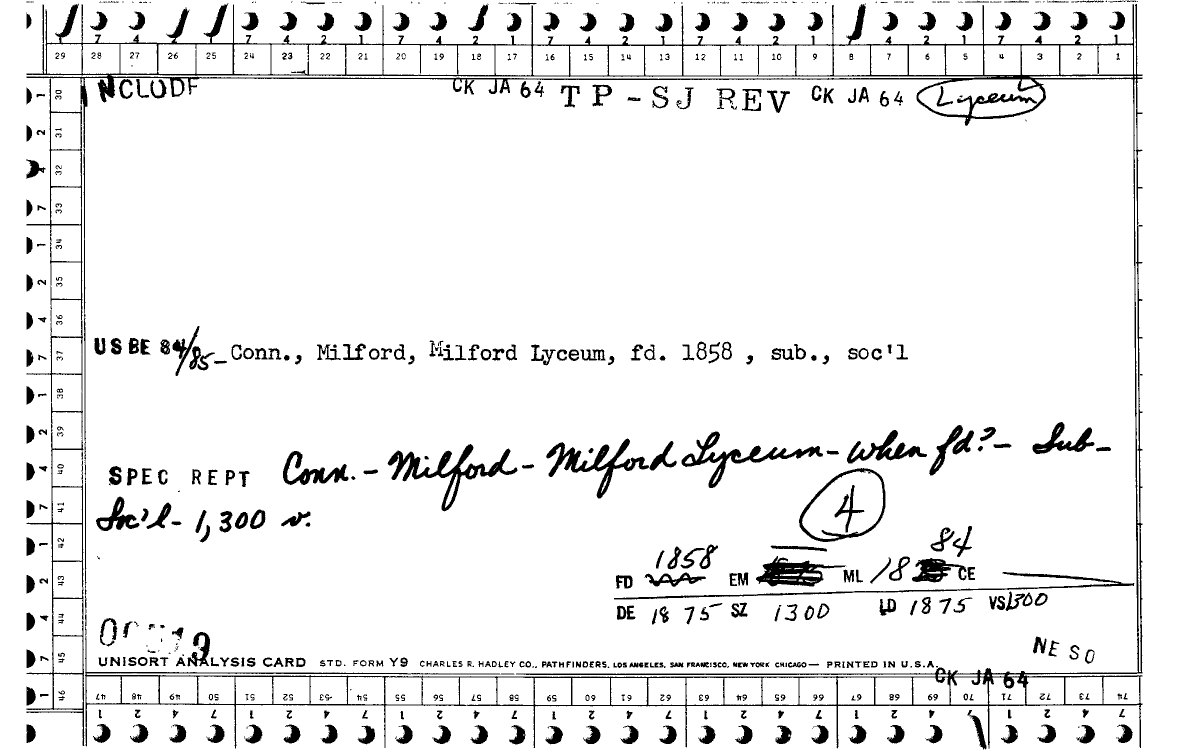 7 4 2 1 7 4 2 1 7 4 2 1 7 4 2 1 7 4 2 1 7 4 2 1 7 4 2 1
29 28 27 26 25 24 23 22 21 20 19 18 17 16 15 14 13 12 11 10 9 8 7 6 5 4 3 2 1
NCLUDE CK JA 64 TP-SJ REV CK JA 64 Lyceum
1 30
2 31
4 32
7 33
1 34
2 35
4 36
USBE 84/85 - Conn., Milford, Milford Lyceum, fd. 1858 , sub., soc'l
7 37
1 38
2 39
4 40
SPEC REPT Conn. - Milford - Milford Lyceum - when fd? - Sub -
Soc'l - 1,300 v.
7 41
4
1 42
84
1858
FD EM ML 18 CE
2 43
DE 1875 SZ 1300 LD 1875 VS 1300
4 44
NE SO
7 45
UNISORT ANALYSIS CARD STD. FORM Y9 CHARLES R. HADLEY CO., PATHFINDERS, LOS ANGELES, SAN FRANCISCO, NEW YORK CHICAGO — PRINTED IN U.S.A.
CK JA 64
1 46
47 48 49 50 51 52 53 54 55 56 57 58 59 60 61 62 63 64 65 66 67 68 69 70 71 72 73 74
1 2 4 7 1 2 4 7 1 2 4 7 1 2 4 7 1 2 4 7 1 2 4 7 1 2 4 7